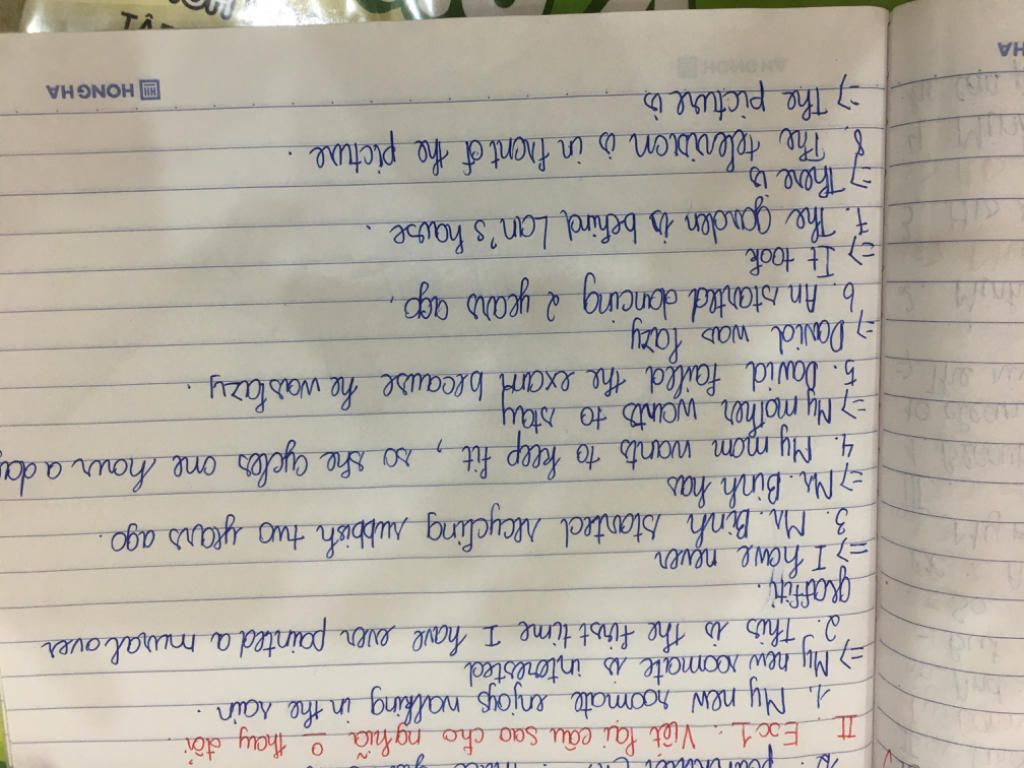 II Ex1. Viết lại câu sao cho nghĩa o thay đổi
1. My new roomate enjoys walking in the rain.
=> My new roomate is interested
2. This is the first time I have ever painted a mural over
graffiti.
=> I have never
3. Mr. Binh started recycling rubbish two years ago.
=> Mr. Binh has
4. My mom wants to keep fit, so she cycles one hour a day
=> My mother wants to stay
5. David failed the exam because he was lazy.
=> David was lazy
6. An started dancing 2 years ago.
=> It took
7. The garden is behind Lan's house.
=> There is
8. The television is in front of the picture.
=> The picture is
HONG HA
HA